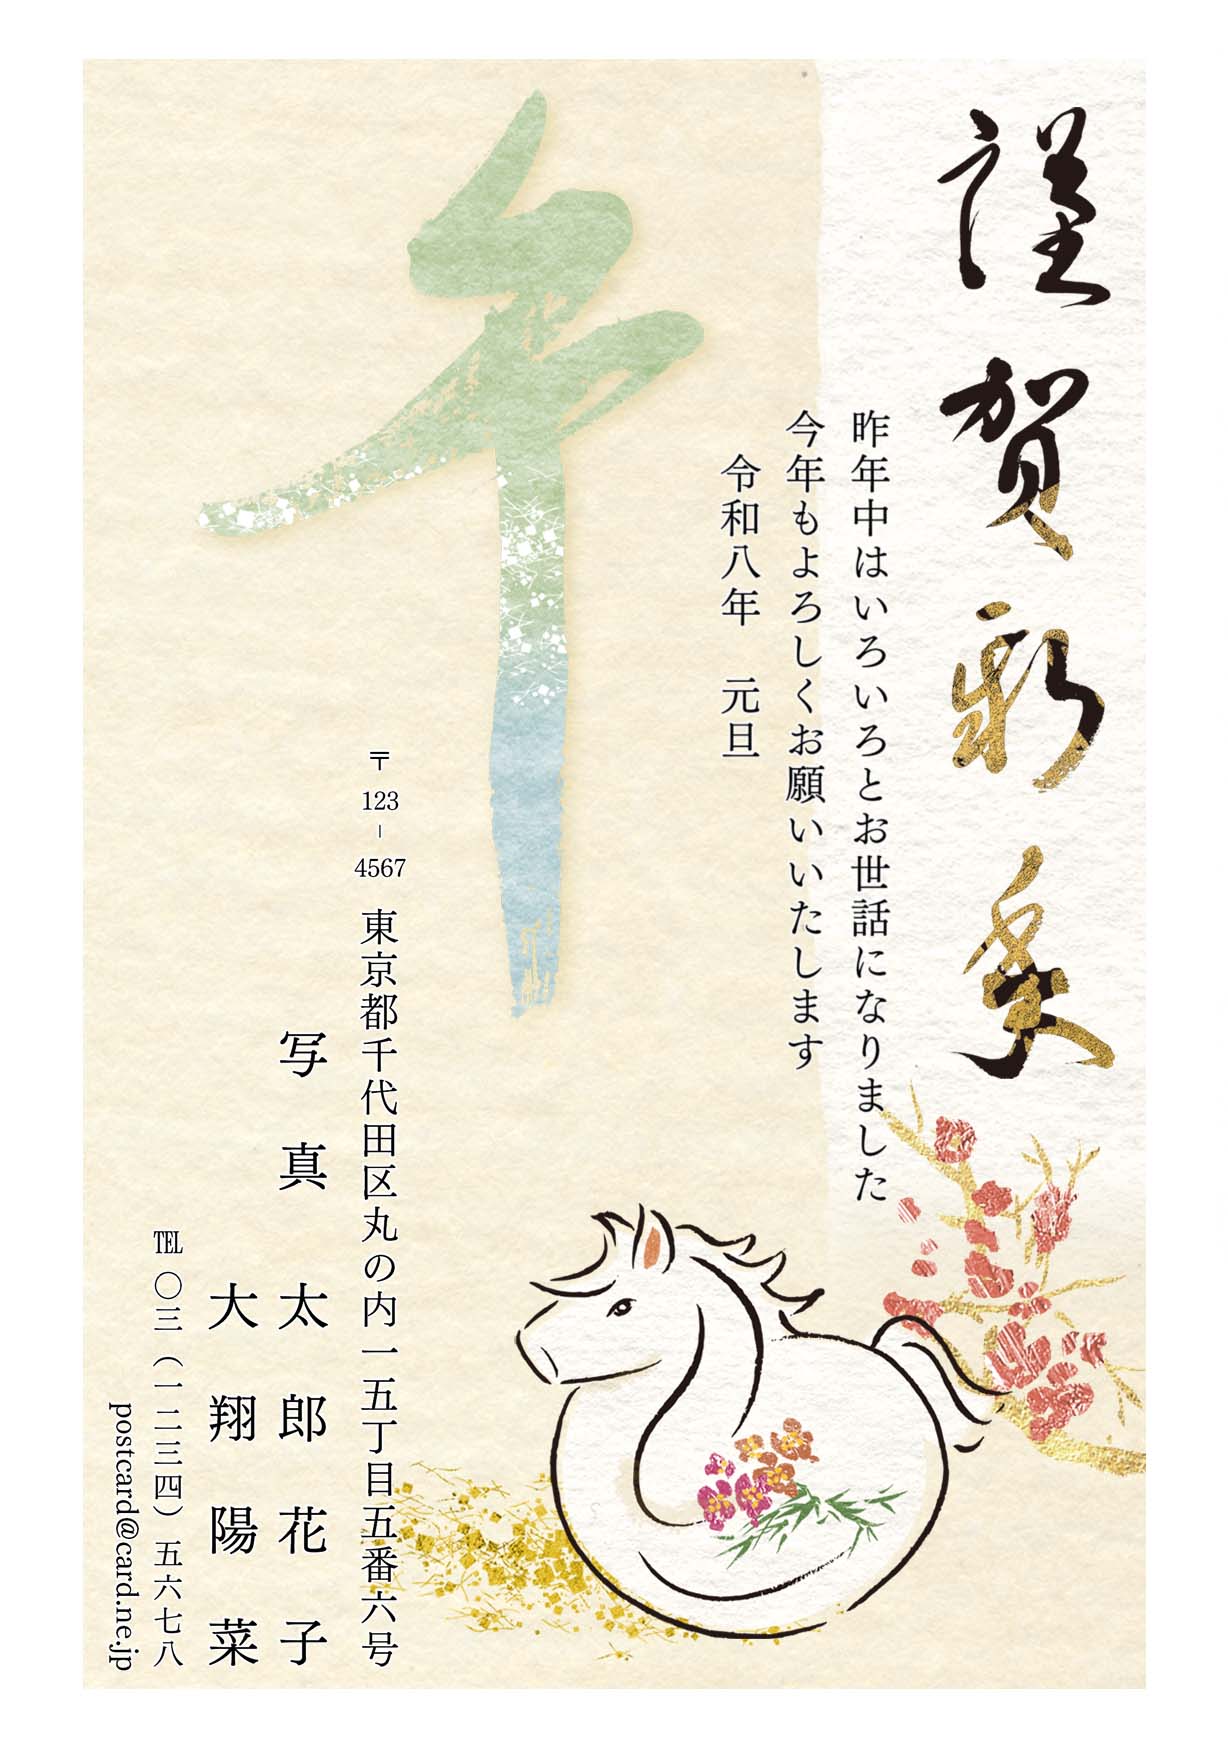 謹賀新年
昨年中はいろいろとお世話になりました
今年もよろしくお願いいたします
令和八年　元旦
午
〒123-4567 東京都千代田区丸の内一五丁目五番六号
写真 太郎 花子
大翔 陽菜
℡〇三(一二三四)五六七八
postcard@card.ne.jp